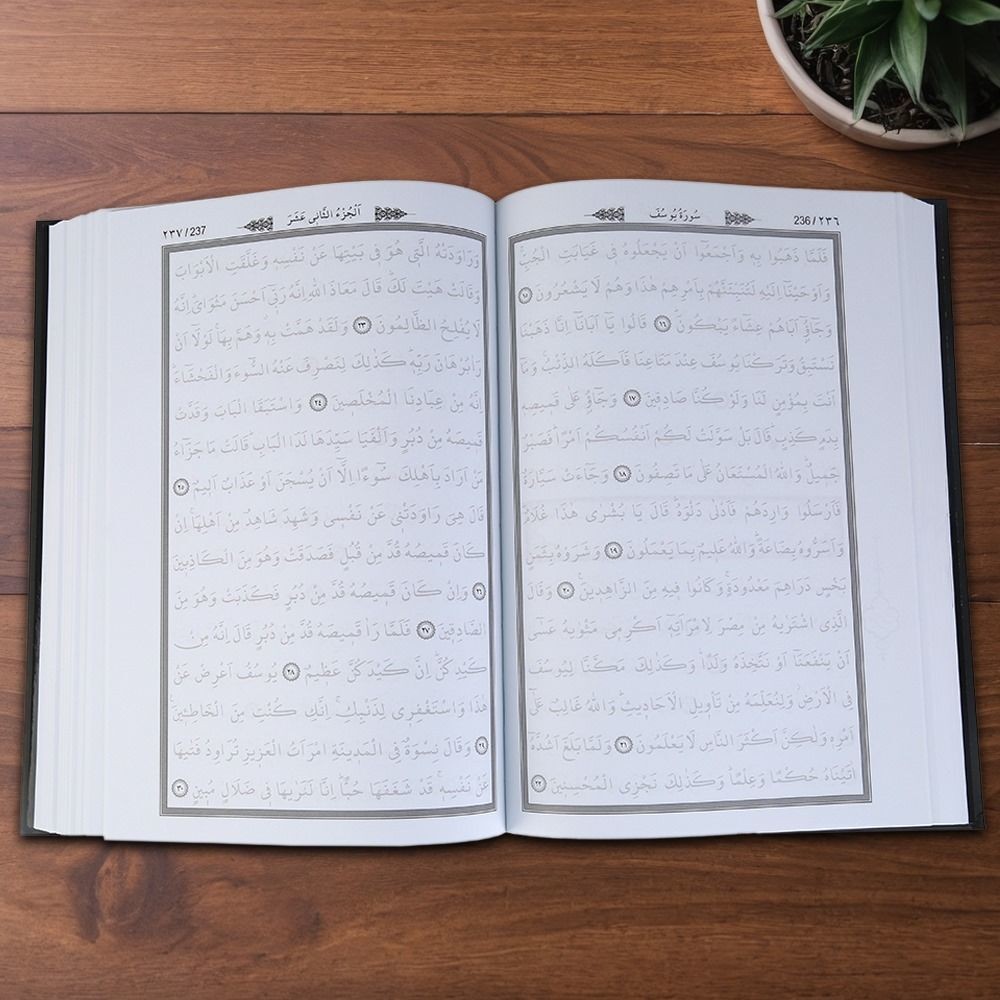 ٢٣٦ / 236
سُورَةُ يُوسُفَ
فَلَمَّا ذَهَبُوا بِه۪ وَاَجْمَعُٓوا اَنْ يَجْعَلُوهُ ف۪ي غَيَابَتِ الْجُبِّۚ
وَاَوْحَيْنَٓا اِلَيْهِ لَتُنَبِّئَنَّهُمْ بِاَمْرِهِمْ هٰذَا وَهُمْ لَا يَشْعُرُونَ ١٥
وَجَٓاؤُٓ اَبَاهُمْ عِشَٓاءً يَبْكُونَۜ ١٦ قَالُوا يَٓا اَبَانَٓا اِنَّا ذَهَبْنَا
نَسْتَبِقُ وَتَرَكْنَا يُوسُفَ عِنْدَ مَتَاعِنَا فَاَكَلَهُ الذِّئْبُۚ وَمَٓا
اَنْتَ بِمُؤْمِنٍ لَنَا وَلَوْ كُنَّا صَادِق۪ينَ ١٧ وَجَٓاؤُ۫ عَلٰى قَم۪يصِه۪
بِدَمٍ كَذِبٍۜ قَالَ بَلْ سَوَّلَتْ لَكُمْ اَنْفُسُكُمْ اَمْرًاۜ فَصَبْرٌ
جَم۪يلٌۜ وَاللّٰهُ الْمُسْتَعَانُ عَلٰى مَا تَصِفُونَ ١٨ وَجَٓاءَتْ سَيَّارَةٌ
فَاَرْسَلُوا وَارِدَهُمْ فَاَدْلٰى دَلْوَهُۜ قَالَ يَا بُشْرٰى هٰذَا غُلَامٌۜ
وَاَسَرُّوهُ بِضَاعَةًۜ وَاللّٰهُ عَل۪يمٌ بِمَا يَعْمَلُونَ ١٩ وَشَرَوْهُ بِثَمَنٍ
بَخْسٍ دَرَاهِمَ مَعْدُودَةٍۚ وَكَانُوا ف۪يهِ مِنَ الزَّاهِد۪ينَ۟ ٢٠ وَقَالَ
الَّذِي اشْتَرٰيهُ مِنْ مِصْرَ لِامْرَاَتِه۪ٓ اَكْرِم۪ي مَثْوٰيهُ عَسٰٓى
اَنْ يَنْفَعَنَٓا اَوْ نَتَّخِذَهُ وَلَدًاۜ وَكَذٰلِكَ مَكَّنَّا لِيُوسُفَ
فِي الْاَرْضِۘ وَلِنُعَلِّمَهُ مِنْ تَأْو۪يلِ الْاَحَاد۪يثِۜ وَاللّٰهُ غَالِبٌ عَلٰٓى
اَمْرِه۪ وَلٰكِنَّ اَكْثَرَ النَّاسِ لَا يَعْلَمُونَ ٢١ وَلَمَّا بَلَغَ اَشُدَّهُٓ
اٰتَيْنَاهُ حُكْمًا وَعِلْمًاۜ وَكَذٰلِكَ نَجْزِي الْمُحْسِن۪ينَ ٢٢
اَلْجُزْءُ الثَّانِي عَشَرَ
٢٣٧ / 237
وَرَاوَدَتْهُ الَّت۪ي هُوَ ف۪ي بَيْتِهَا عَنْ نَفْسِه۪ وَغَلَّقَتِ الْاَبْوَابَ
وَقَالَتْ هَيْتَ لَكَۜ قَالَ مَعَاذَ اللّٰهِ اِنَّهُ رَبّ۪ٓي اَحْسَنَ مَثْوَايَۜ اِنَّهُ
لَا يُفْلِحُ الظَّالِمُونَ ٢٣ وَلَقَدْ هَمَّتْ بِه۪ۚ وَهَمَّ بِهَاۚ لَوْلَٓا اَنْ
رَاٰ بُرْهَانَ رَبِّه۪ۜ كَذٰلِكَ لِنَصْرِفَ عَنْهُ السُّٓوءَ وَالْفَحْشَٓاءَۜ
اِنَّهُ مِنْ عِبَادِنَا الْمُخْلَص۪ينَ ٢٤ وَاسْتَبَقَا الْبَابَ وَقَدَّتْ
قَم۪يصَهُ مِنْ دُبُرٍ وَاَلْفَيَا سَيِّدَهَا لَدَا الْبَابِۜ قَالَتْ مَا جَزَٓاءُ
مَنْ اَرَادَ بِاَهْلِكَ سُٓوءًا اِلَّٓا اَنْ يُسْجَنَ اَوْ عَذَابٌ اَل۪يمٌ ٢٥
قَالَ هِيَ رَاوَدَتْن۪ي عَنْ نَفْس۪ي وَشَهِدَ شَاهِدٌ مِنْ اَهْلِهَاۚ اِنْ
كَانَ قَم۪يصُهُ قُدَّ مِنْ قُبُلٍ فَصَدَقَتْ وَهُوَ مِنَ الْكَاذِب۪ينَ
٢٦ وَاِنْ كَانَ قَم۪يصُهُ قُدَّ مِنْ دُبُرٍ فَكَذَبَتْ وَهُوَ مِنَ
الصَّادِق۪ينَ ٢٧ فَلَمَّا رَاٰ قَم۪يصَهُ قُدَّ مِنْ دُبُرٍ قَالَ اِنَّهُ مِنْ
كَيْدِكُنَّۜ اِنَّ كَيْدَكُنَّ عَظ۪يمٌ ٢٨ يُوسُفُ اَعْرِضْ عَنْ
هٰذَا وَاسْتَغْفِر۪ي لِذَنْبِكِۚ اِنَّكِ كُنْتِ مِنَ الْخَاطِـ۪ٔينَ۟
٢٩ وَقَالَ نِسْوَةٌ فِي الْمَد۪ينَةِ امْرَاَتُ الْعَز۪يزِ تُرَاوِدُ فَتٰيهَا
عَنْ نَفْسِه۪ۚ قَدْ شَغَفَهَا حُبًّاۜ اِنَّا لَنَرٰيهَا ف۪ي ضَلَالٍ مُب۪ينٍ ٣٠